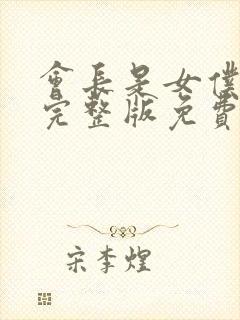 會長是女僕
完整版免費
宋李煌